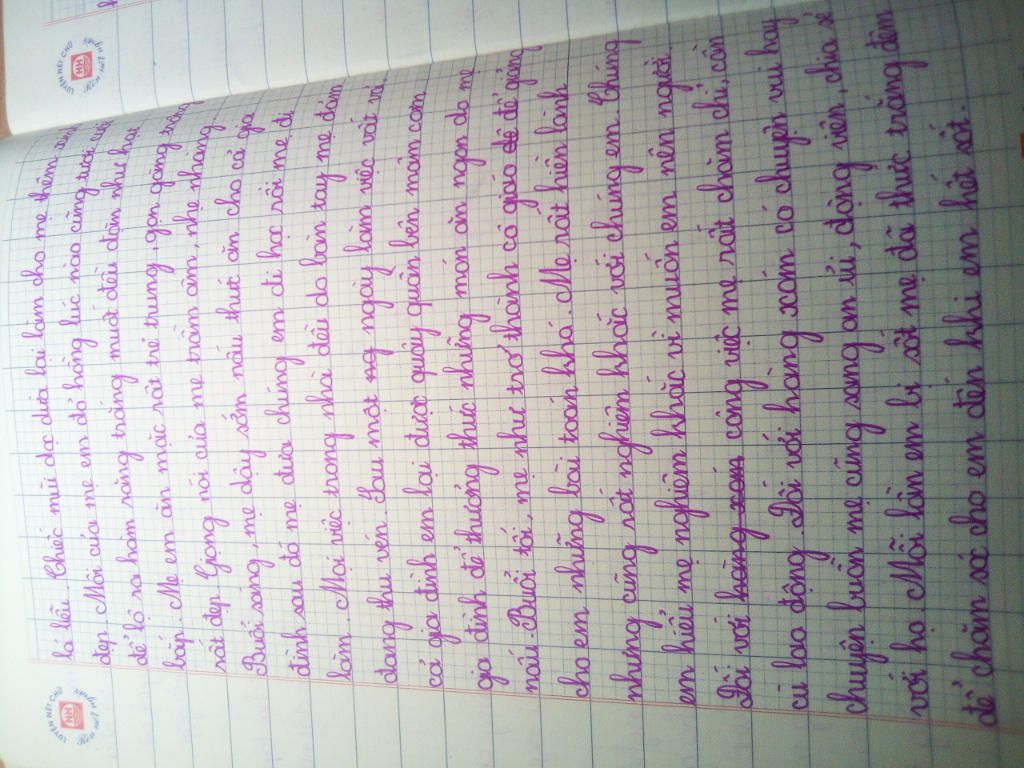 lá liễu. Chiếc mũi dọc dừa lại làm cho mẹ thêm xinh
đẹp. Môi của mẹ em đỏ hồng lúc nào cũng tươi cười
để lộ ra hàm răng trắng muốt đều đăn như hai
bắp. Mẹ em ăn mặc rất trẻ trung, gọn gàng trông
rất đẹp. Giọng nói của mẹ trầm ấm, nhẹ nhàng.
Buổi sáng, mẹ dậy sớm nấu thức ăn cho cả gia
đình sau đó mẹ đưa chúng em đi học rồi mẹ đi
làm. Mọi việc trong nhà đều do bàn tay mẹ đảm
đang thu vén. Sau một ng ngày làm việc vất vả,
cả gia đình em lại được quây quần bên mâm cơm
gia đình để thưởng thức những món ăn ngon do mẹ
nấu. Buổi tối, mẹ như trở thành cô giáo để để giảng
cho em những bài toán khó. Mẹ rất hiền lành
nhưng cũng rất nghiêm khắc với chúng em. Chúng
em hiểu mẹ nghiêm khắc vì muốn em nên người.
Đối với hàng xóm công việc mẹ rất chăm chỉ, cần
cù lao động. Đối với hàng xóm có chuyện vui hay
chuyện buồn mẹ cũng sang an ủi, động viên, chia sẻ
với họ. Mỗi lần em bị sốt mẹ đã thức trắng đêm
để chăm sóc cho em đến khi em hết sốt.
LUYỆN NÉT CHỮ
LUYỆN NÉT CHỮ